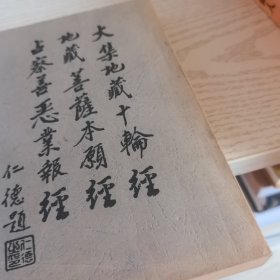 大集地藏十輪經
地藏菩薩本願經
占察善惡業報經
仁德題
仁德